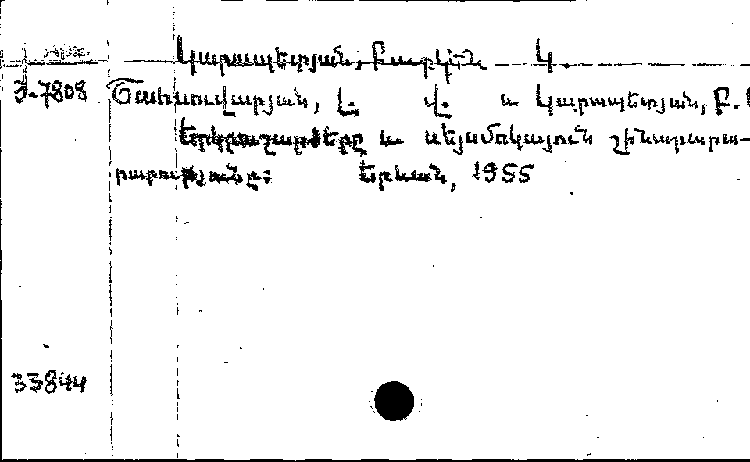 Կարապետյան, Բարկեն Կ.
3-7808 Շահնուվարյան, Լ. վ. և Կարապետյան, Բ.
Երկրաշարժերը և սեյսմոկայուն շինարարա-
րարությունը: Երևան, 1955
33844